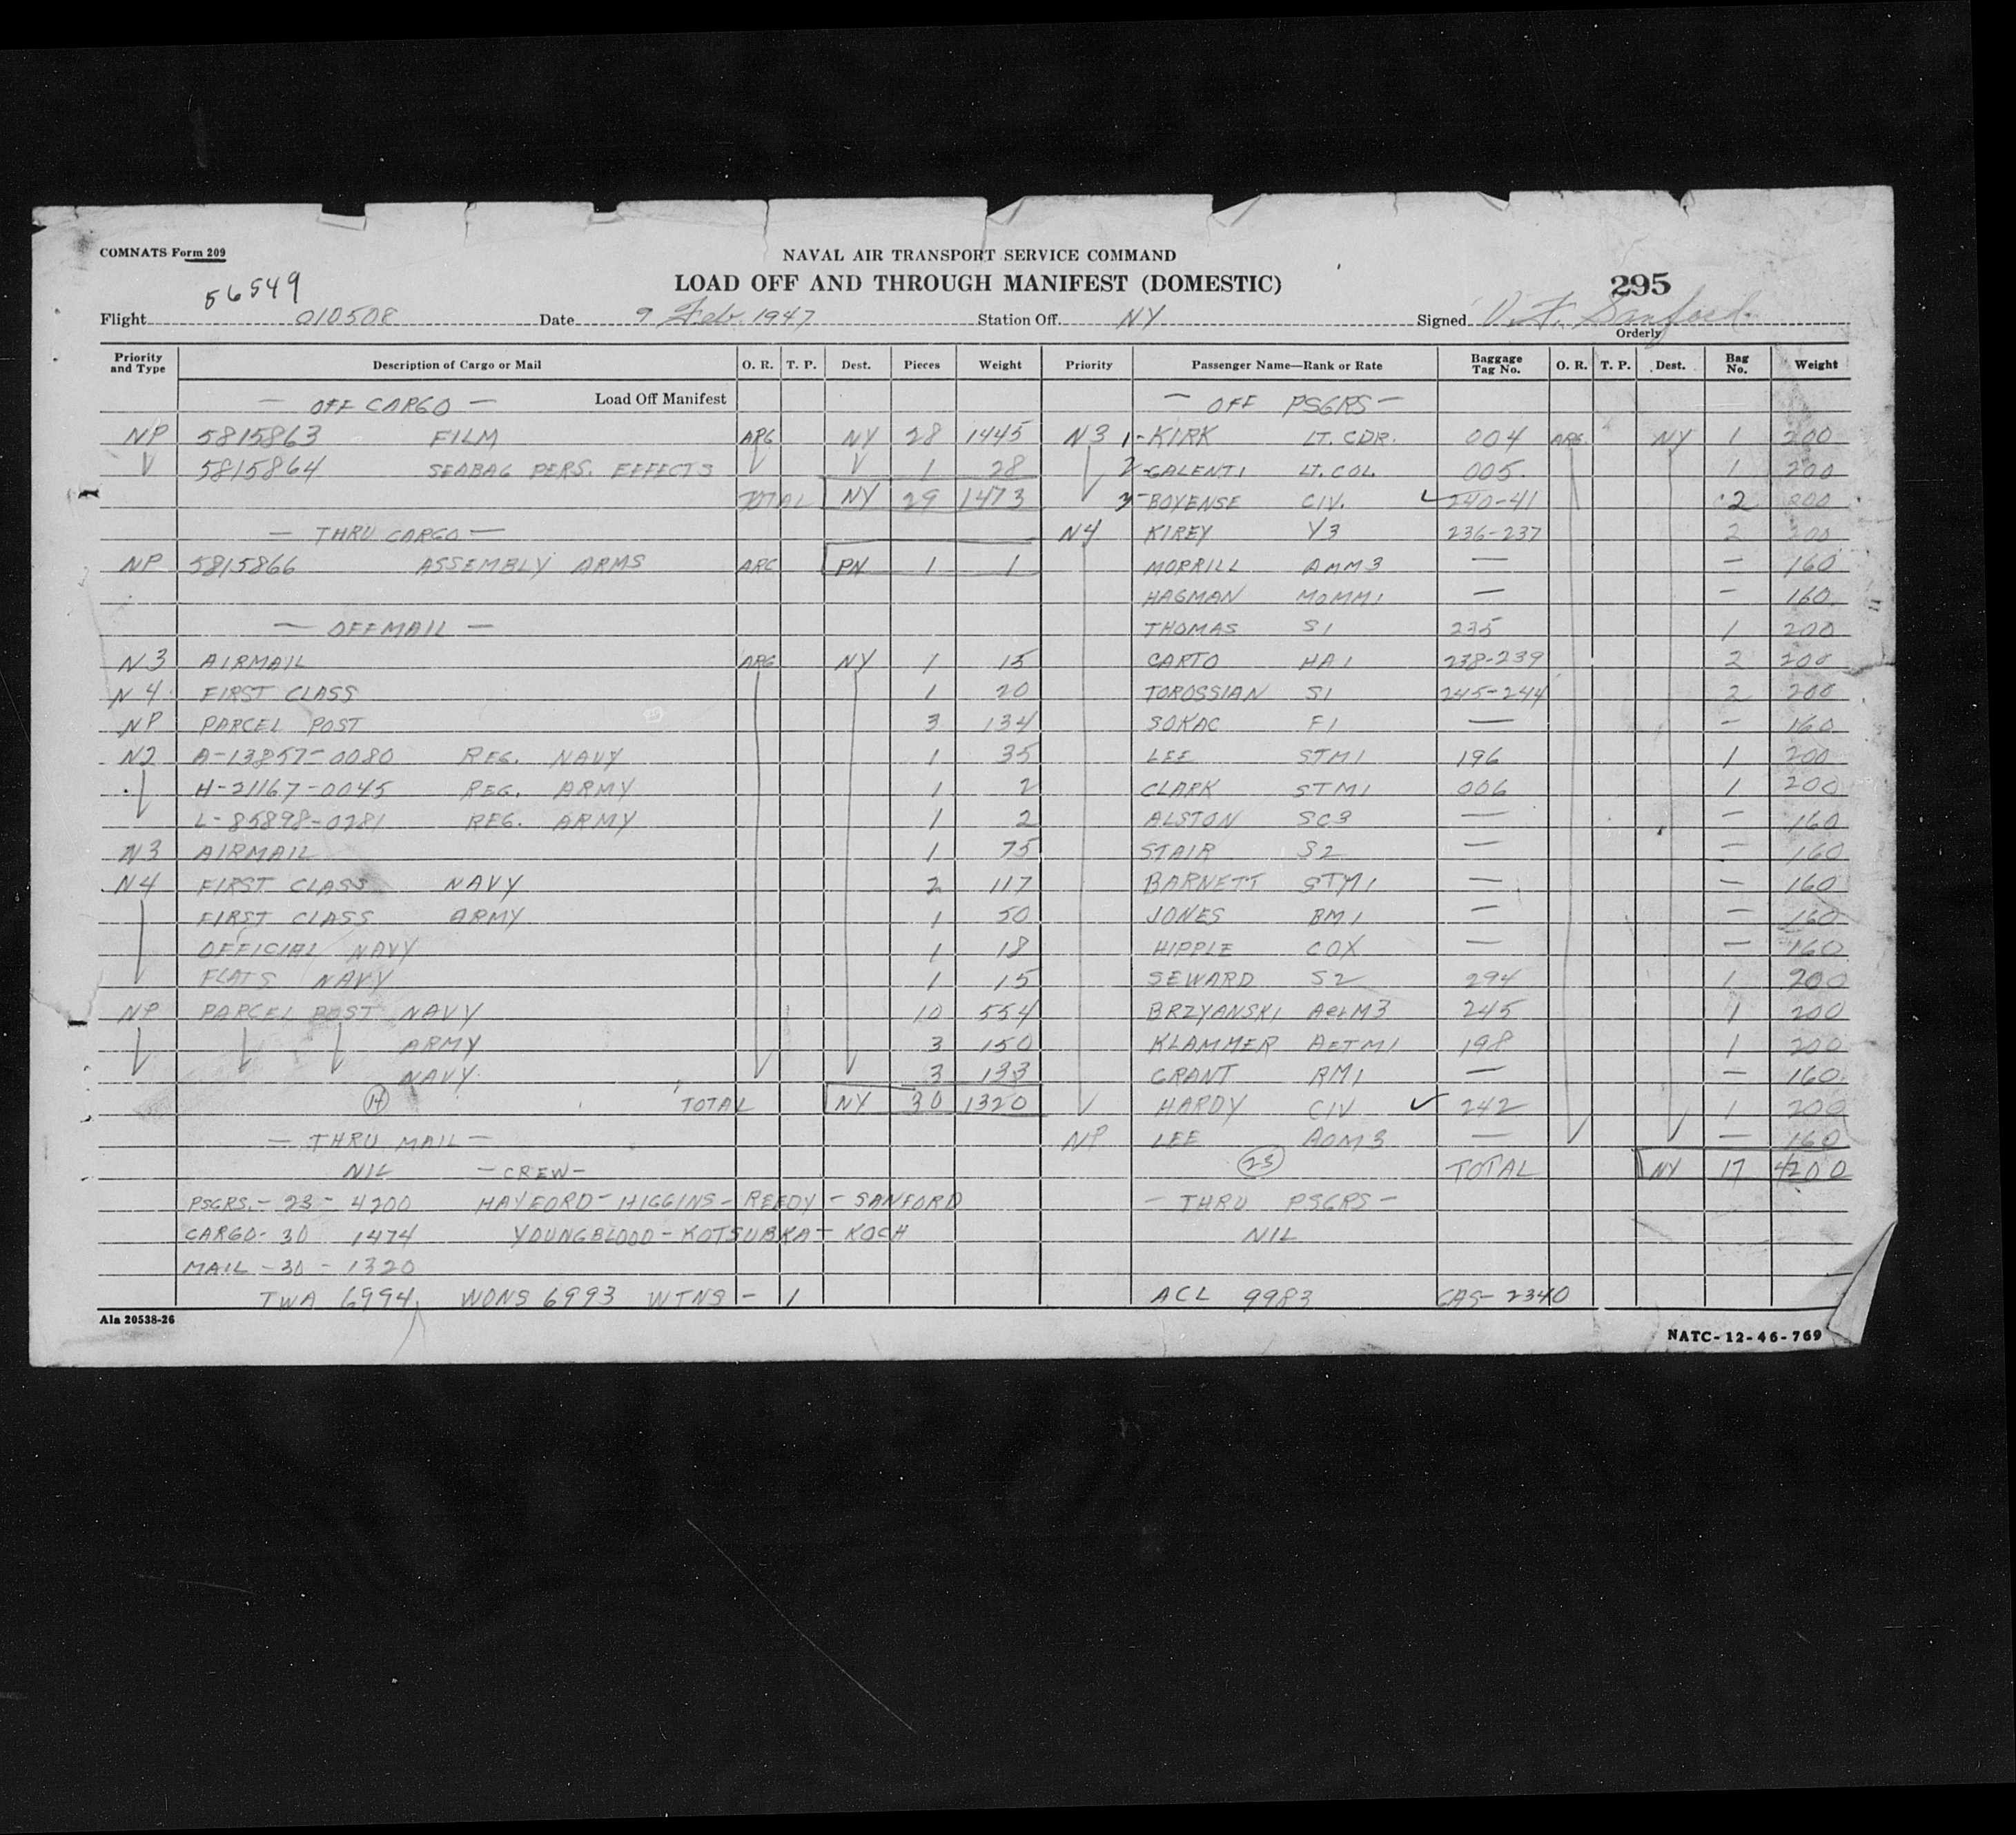 COMNATS Form 209
NAVAL AIR TRANSPORT SERVICE COMMAND
LOAD OFF AND THROUGH MANIFEST (DOMESTIC)
295
56549
Flight 010508 Date 9 Feb. 1947 Station Off NY Signed V. F. Sanford
Orderly
Priority and Type Description of Cargo or Mail O. R. T. P. Dest. Pieces Weight
Load Off Manifest
— OFF CARGO —
NP 5815863 FILM ARG NY 28 1445
5815864 SEABAG PERS. EFFECTS 1 28
TOTAL NY 29 1473
— THRU CARGO —
NP 5815866 ASSEMBLY ARMS ARG PN 1 1
— OFF MAIL —
N3 AIRMAIL ARG NY 1 15
N4 FIRST CLASS 1 20
NP PARCEL POST 3 134
N2 A-13857-0080 REG. NAVY 1 35
H-21167-0045 REG. ARMY 1 2
L-85898-0281 REG. ARMY 1 2
N3 AIRMAIL 1 75
N4 FIRST CLASS NAVY 2 117
FIRST CLASS ARMY 1 50
OFFICIAL NAVY 1 18
FLATS NAVY 1 15
NP PARCEL POST NAVY 10 554
ARMY 3 150
NAVY 3 133
TOTAL NY 30 1320
— THRU MAIL —
NIL — CREW —
PSGRS. - 23 - 4200 HAYFORD - HIGGINS - REEDY - SANFORD
CARGO - 30 1474 YOUNGBLOOD - KOTSUBKA - KOCH
MAIL - 30 - 1320
TWA 6994 WONS 6993 WTNS - 1
Priority Passenger Name—Rank or Rate Baggage Tag No. O. R. T. P. Dest. Bag No. Weight
— OFF PSGRS —
N3 1- KIRK LT. CDR. 004 ARG NY 1 200
2- GALENTI LT. COL. 005 1 200
3- BOYENSE CIV. 240-41 2 200
N4 KIREY Y3 236-237 2 200
MORRILL AMM3 — — 160
HAGMAN MOMM1 — — 160
THOMAS S1 235 1 200
CARTO HA1 238-239 2 200
TOROSSIAN S1 245-244 2 200
SOKAC F1 — — 160
LEE STM1 196 1 200
CLARK STM1 006 1 200
ALSTON SC3 — — 160
STAIR S2 — — 160
BARNETT STM1 — — 160
JONES BM1 — — 160
HIPPLE COX — — 160
SEWARD S2 294 1 200
BRZYANSKI AetM3 245 1 200
KLAMMER AETM1 198 1 200
GRANT RM1 — — 160
HARDY CIV 242 1 200
NP LEE AOM3 — — 160
23 TOTAL NY 17 4200
— THRU PSGRS —
NIL
ACL 9983 GAS- 2340
Ala 20538-26
NATC-12-46-769